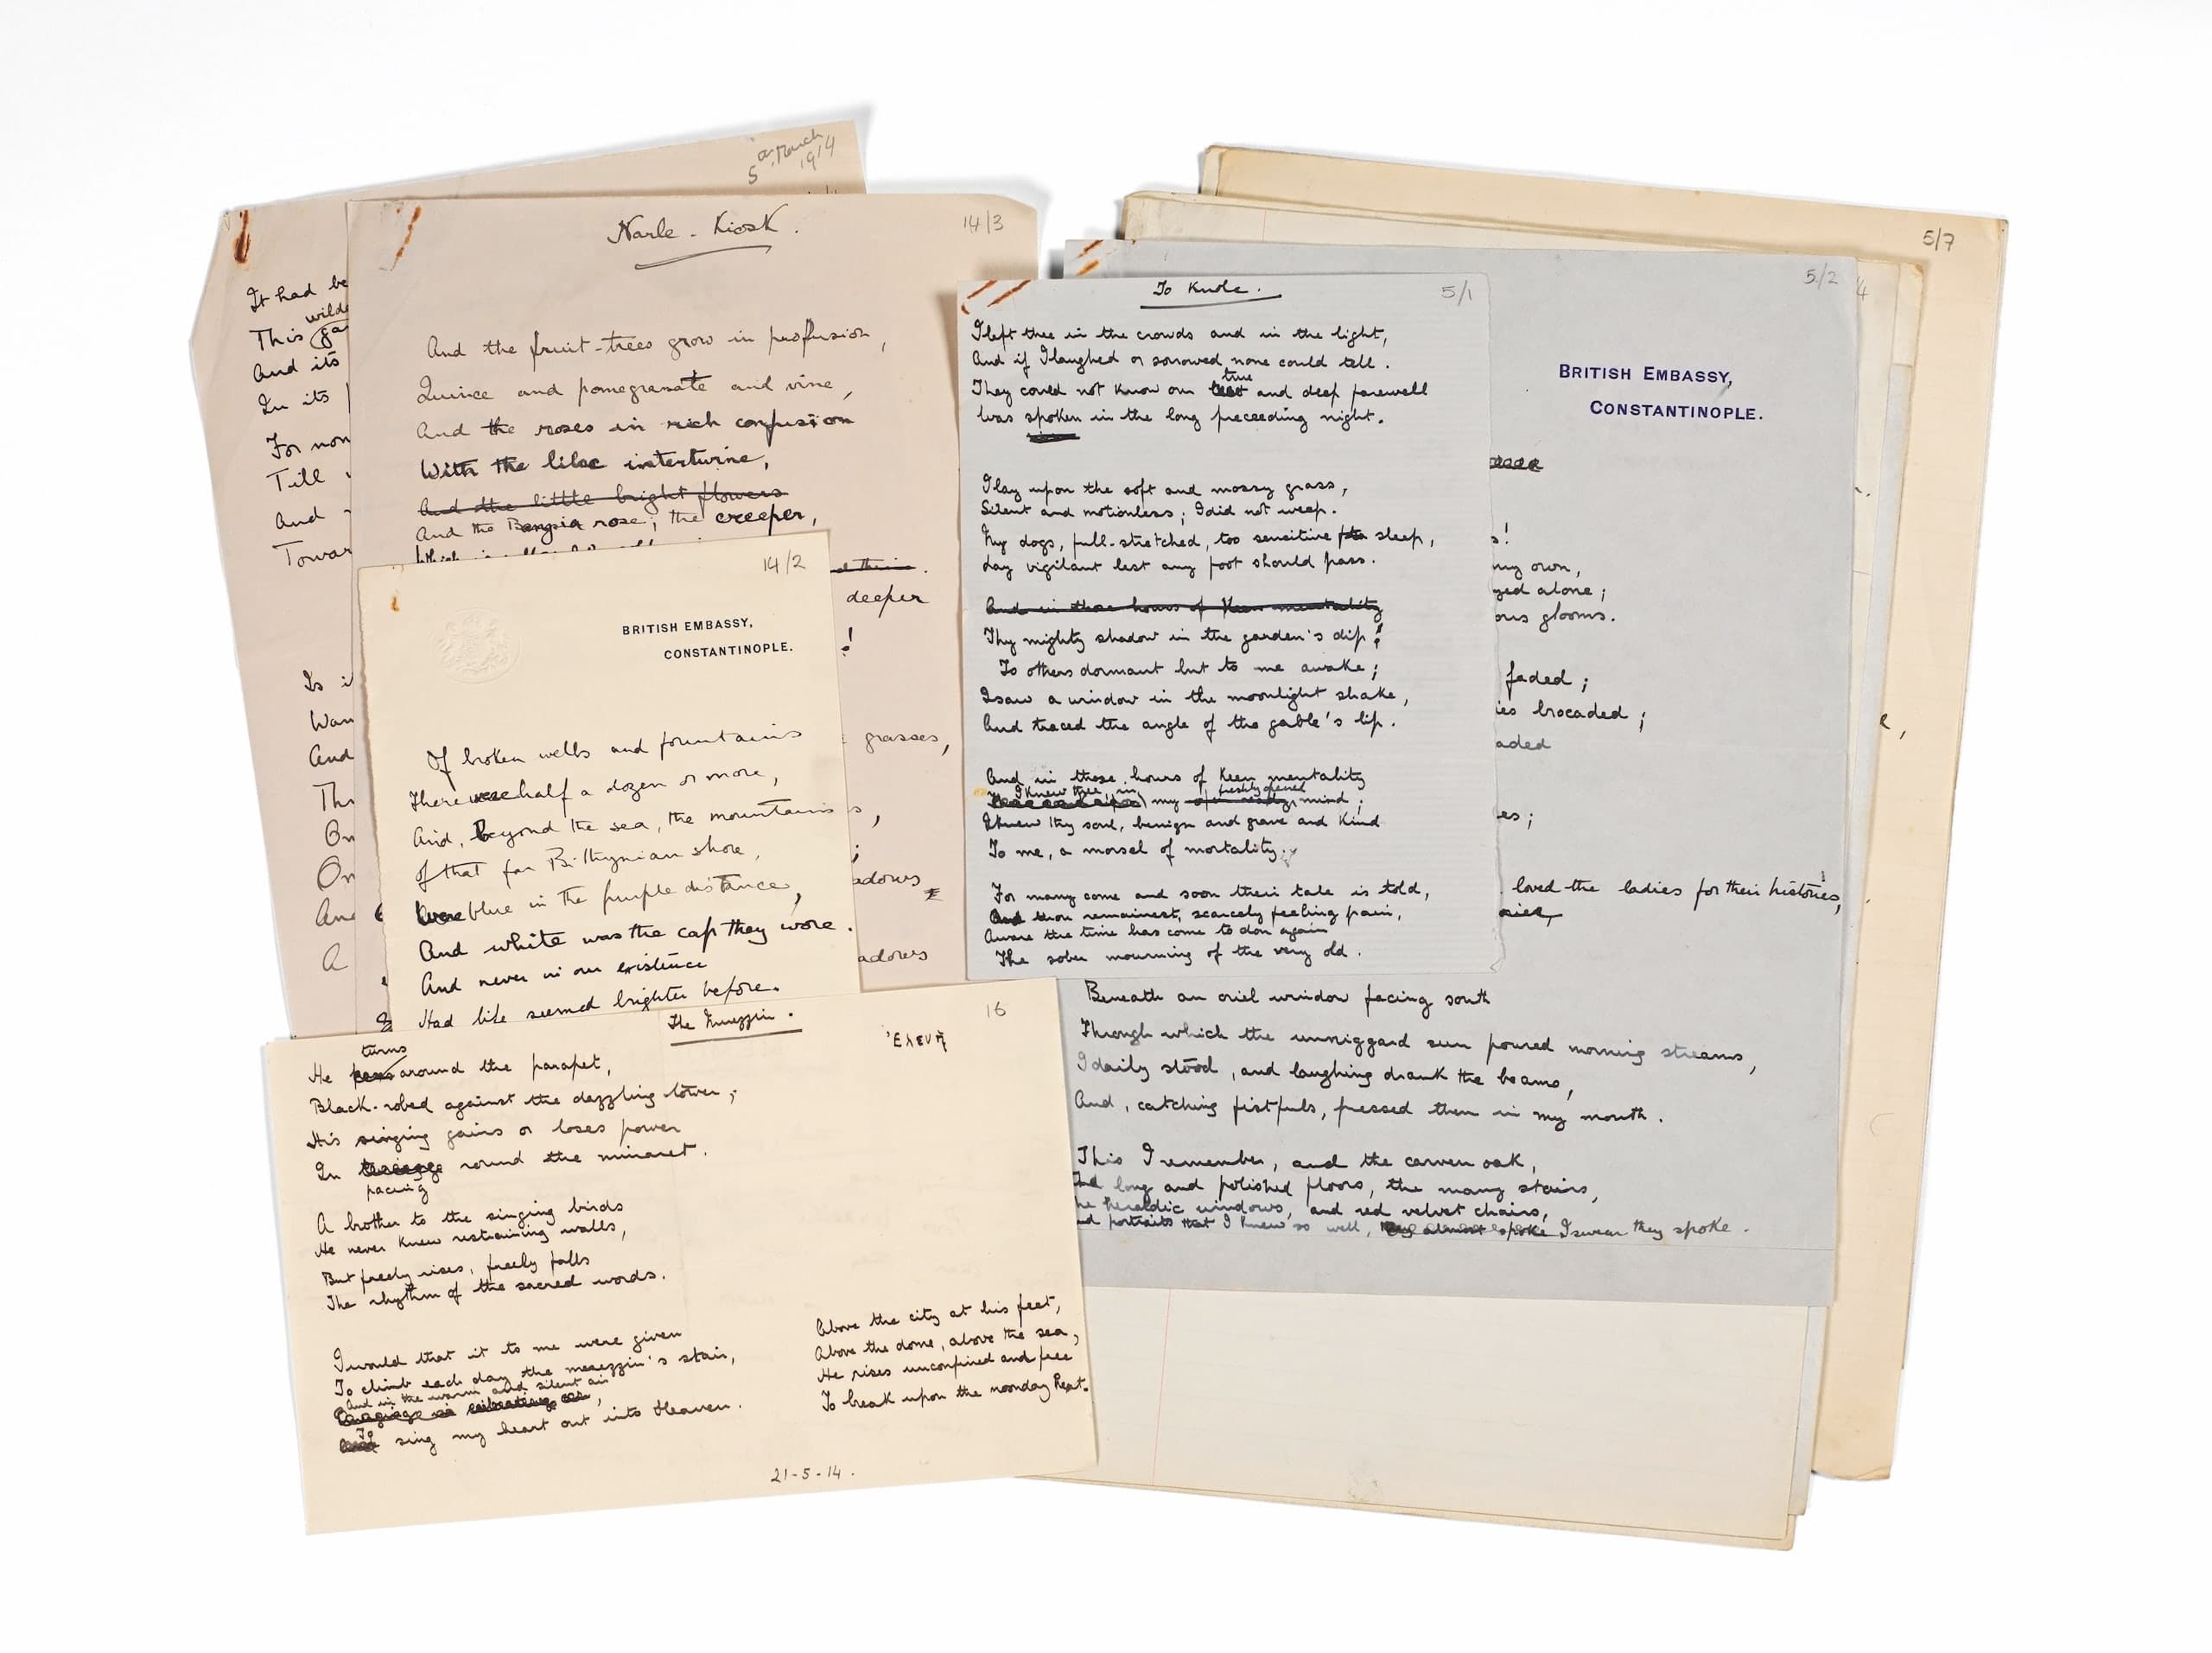 5th March
1914
It had be
wilde
This (ga
And its
In its
For non
Till
And
Towar
Is i
Wan
And
Th
On
On
And
A
Narle-Kiosk.
14/3
And the fruit-trees grow in profusion,
Quince and pomegranate and vine,
And the roses in rich confusion
With the lilac intertwine,
And the little bright flowers
And the Bangsia rose; the creeper,
deeper
!
grasses,
s,
;
adows
adows
14/2
BRITISH EMBASSY,
CONSTANTINOPLE.
Of broken wells and fountains
There were half a dozen or more,
And, beyond the sea, the mountains
Of that far Bithynian shore,
Were blue in the purple distance,
And white was the cap they wore.
And never in our existence
Had life seemed brighter before.
The Muezzin.
16
turns
He around the parapet,
Black-robed against the dazzling tower;
His singing gains or loses power
In round the minaret.
pacing
A brother to the singing birds
He never knew restraining walls,
But freely rises, freely falls
The rhythm of the sacred words.
I would that it to me were given
To climb each day the muezzin's stair,
And in the warm and silent air
To
sing my heart out into Heaven.
Above the city at his feet,
Above the dome, above the sea,
He rises unconfined and free
To break upon the noonday heat.
21-5-14.
To Knole.
5/1
I left thee in the crowds and in the light,
And if I laughed or sorrowed none could tell.
true
They could not know our and deep farewell
Was spoken in the long preceeding night.
I lay upon the soft and mossy grass,
Silent and motionless; I did not weep.
My dogs, full-stretched, too sensitive to sleep,
Lay vigilant lest any foot should pass.
And in those hours of keen mentality
Thy mighty shadow in the garden's dip!
To others dormant but to me awake;
I saw a window in the moonlight shake,
And traced the angle of the gable's lip.
And in those hours of keen mentality
I knew thee, in freshly opened
my mind;
I knew thy soul, benign and grave and kind
To me, a morsel of mortality.
For many come and soon their tale is told,
And thou remainest, scarcely feeling pain,
Aware the time has come to don again
The sober mourning of the very old.
5/2
BRITISH EMBASSY,
CONSTANTINOPLE.
s!
my own,
yed alone;
ous glooms.
faded;
ies brocaded;
aded
es;
loved the ladies for their histories,
Beneath an oriel window facing south
Through which the unniggard sun poured morning streams,
I daily stood, and laughing drank the beams,
And, catching fistfuls, pressed them in my mouth.
This I remember, and the carven oak,
The long and polished floors, the many stairs,
The heraldic windows, and red velvet chairs,
And portraits that I knew so well, they almost spoke I swear they spoke.
4
5/7
e,